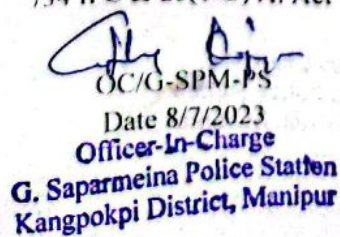 OC/G-SPM-PS
Date 8/7/2023
Officer-In-Charge
G. Saparmeina Police Station
Kangpokpi District, Manipur